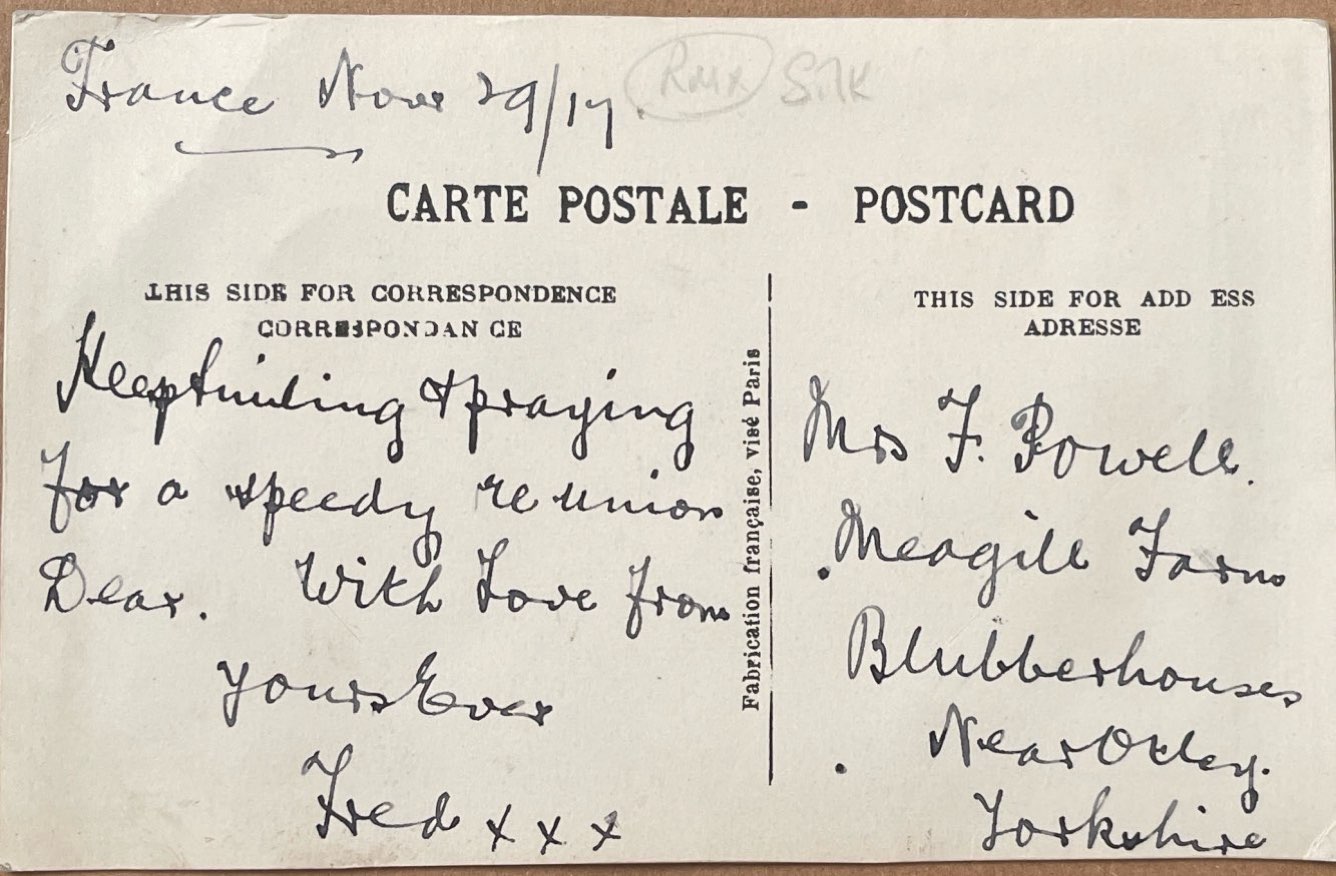 France Nov 29/17.
Silk
CARTE POSTALE - POSTCARD
THIS SIDE FOR CORRESPONDENCE
CORRESPONDANCE
Keep smiling & praying
for a speedy reunion
Dear. With Love from
Yours Ever
Fred x x x
Fabrication française, visé Paris
THIS SIDE FOR ADD ESS
ADRESSE
Mrs F. Powell.
Meagill Farm
Blubberhouses
Near Otley.
Yorkshire